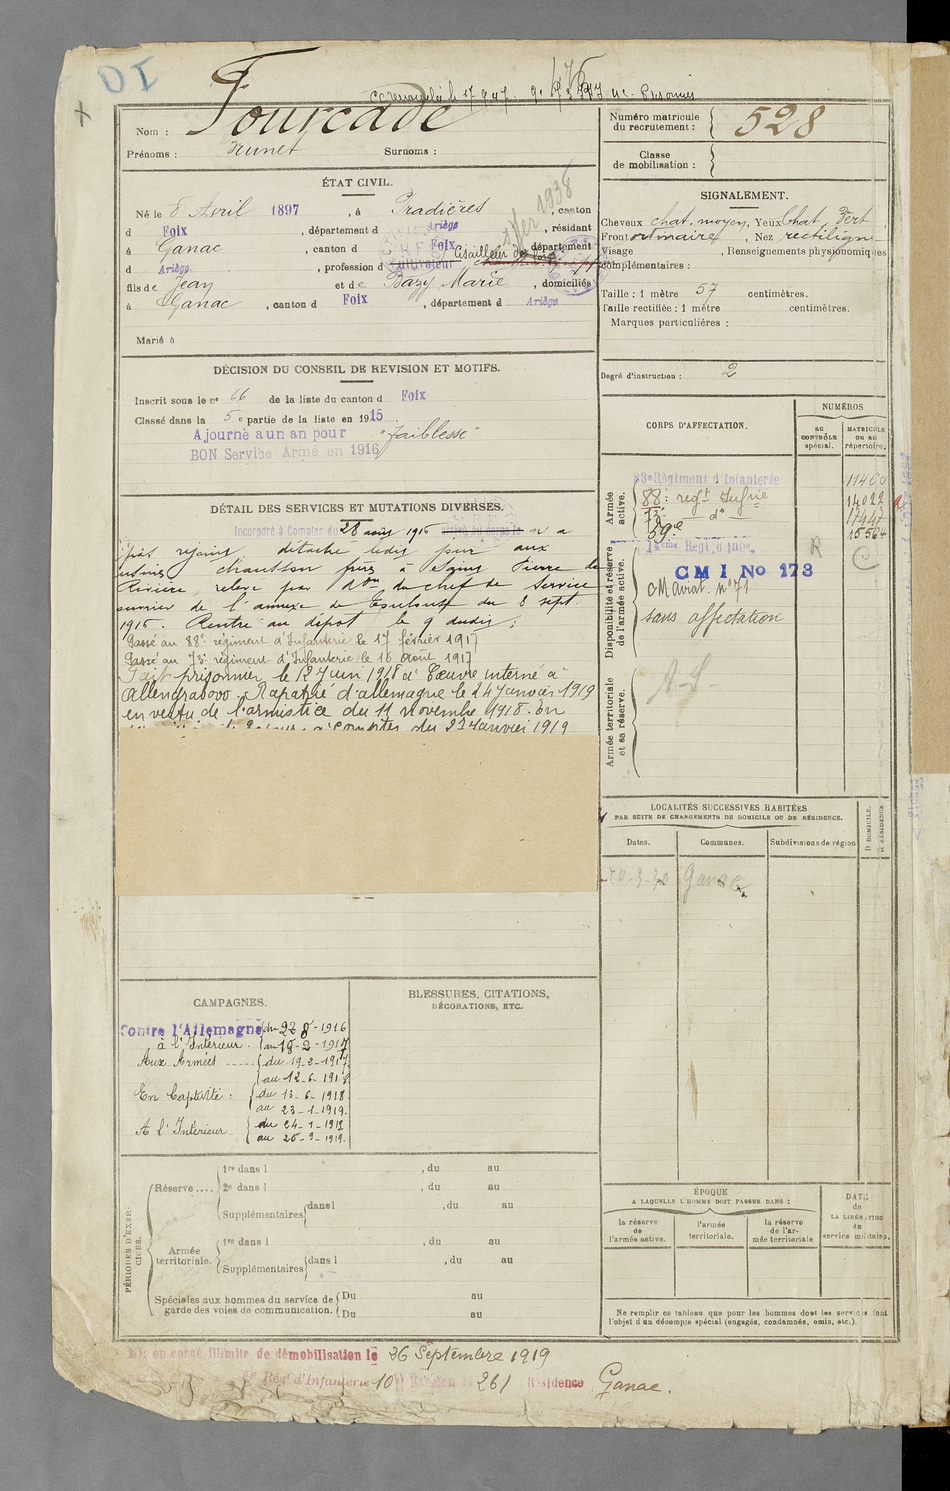 Nom : Fourcade
Numéro matricule du recrutement : 528
Prénoms : Surnoms :
Classe de mobilisation :
ÉTAT CIVIL.
Né le 8 Avril 1897, à Pradières, canton
d Foix, département d Ariège, résidant
à Ganac, canton d Foix, département
d Ariège, profession d cultivateur
fils de Jean et de Bazy Marie, domiciliés
à Ganac, canton d Foix, département d Ariège
1er 1938
Marié à
SIGNALEMENT.
Cheveux chat. moyen, Yeux Chat Vert
Front ordinaire, Nez rectiligne
Visage , Renseignements physionomiques
complémentaires :
Taille : 1 mètre 57 centimètres.
Taille rectifiée : 1 mètre centimètres.
Marques particulières :
Degré d'instruction : 2
DÉCISION DU CONSEIL DE REVISION ET MOTIFS.
Inscrit sous le nº 66 de la liste du canton d Foix
Classé dans la 5e partie de la liste en 1915
Ajourné a un an pour "faiblesse"
BON Service Armé en 1916
DÉTAIL DES SERVICES ET MUTATIONS DIVERSES.
Incorporé à Compter du 28 août 1916 arrivé au corps le n'a
pas rejoint, détaché ledit jour aux
usines chausson frères à Saint Pierre de
Rivière, relevé par don du chef de service
ouvrier de l'annexe de Toulouse du 8 sept.
1916. Rentré au dépôt le 9 dudit ;
Passé au 88e régiment d'Infanterie le 17 février 1917
Passé au 73e régiment d'Infanterie le 16 Août 1917
Fait prisonnier le 12 Juin 1918 à Coeuvre interné à
Rapatrié d'allemagne le 24 Janvier 1919
en vertu de l'armistice du 11 Novembre 1918. En
à compter du 23 Janvier 1919
CORPS D'AFFECTATION.
NUMÉROS
AU CONTRÔLE spécial.
MATRICULE OU AU répertoire.
Armée active.
83e Régiment d Infanterie 11400
88e regt Infrie 14022
73e do 17447
59e 15564
Disponibilité et réserve de l'armée active.
14eme Regt d'Infie R C
CMI No 173
CM aviat. nº 71
sans affectation
Armée territoriale et sa réserve.
A-S
LOCALITÉS SUCCESSIVES HABITÉES
PAR SUITE DE CHANGEMENTS DE DOMICILE OU DE RÉSIDENCE.
Dates. Communes. Subdivisions de région
D. DOMICILE. R. RÉSIDENCE.
20-3-20 Ganac
CAMPAGNES.
Contre l'Allemagne du 28 8-1916
à l'Intérieur au 18-2-1917
Aux Armées du 19-2-1917
au 12-6-1918
En Captivité : du 13-6-1918
au 23-1-1919.
A l'Intérieur du 24-1-1919
au 25-9-1919.
BLESSURES, CITATIONS,
DÉCORATIONS, ETC.
PÉRIODES D'EXERCICES.
Réserve.... 1re dans l , du au
2e dans l , du au
Supplémentaires dans l , du au
Armée territoriale. 1re dans l , du au
Supplémentaires dans l , du au
Spéciales aux hommes du service de garde des voies de communication. Du au
Du au
ÉPOQUE
A LAQUELLE L'HOMME DOIT PASSER DANS :
la réserve de l'armée active.
l'armée territoriale.
la réserve de l'armée territoriale
DATE de LA LIBÉRATION du service militaire.
Ne remplir ce tableau que pour les hommes dont les services font
l'objet d'un décompte spécial (engagés, condamnés, omis, etc.).
Mis en congé illimité de démobilisation le 26 Septembre 1919
Régt d'Infanterie 10 261 Résidence Ganac.